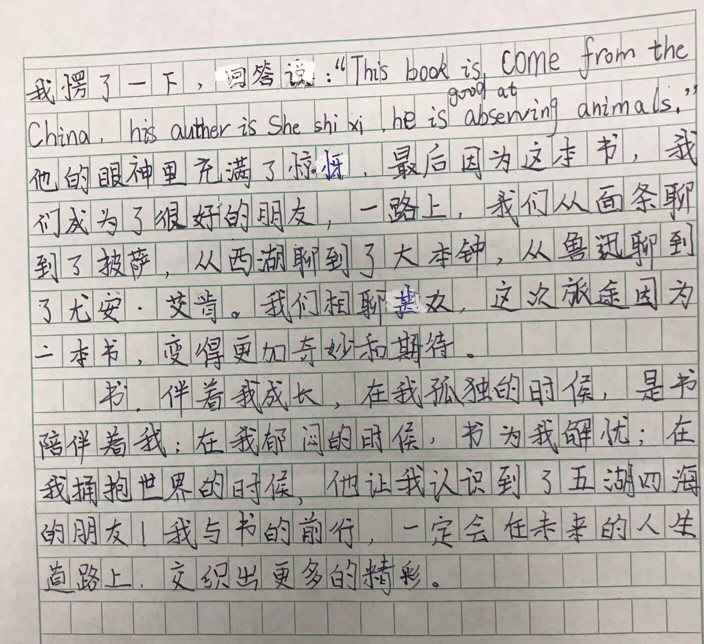 我愣了一下，回答说：“This book is come from the
China, his auther is She shi xi, he is good at observing animals.”
他的眼神里充满了惊讶，最后因为这本书，我
们成为了很好的朋友，一路上，我们从面条聊
到了披萨，从西湖聊到了大本钟，从鲁迅聊到
了尤安·艾肯。我们相聊甚欢，这次旅途因为
一本书，变得更加奇妙和期待。
书，伴着我成长，在我孤独的时候，是书
陪伴着我；在我郁闷的时候，书为我解忧；在
我拥抱世界的时候，他让我认识到了五湖四海
的朋友！我与书的前行，一定会在未来的人生
道路上，交织出更多的精彩。